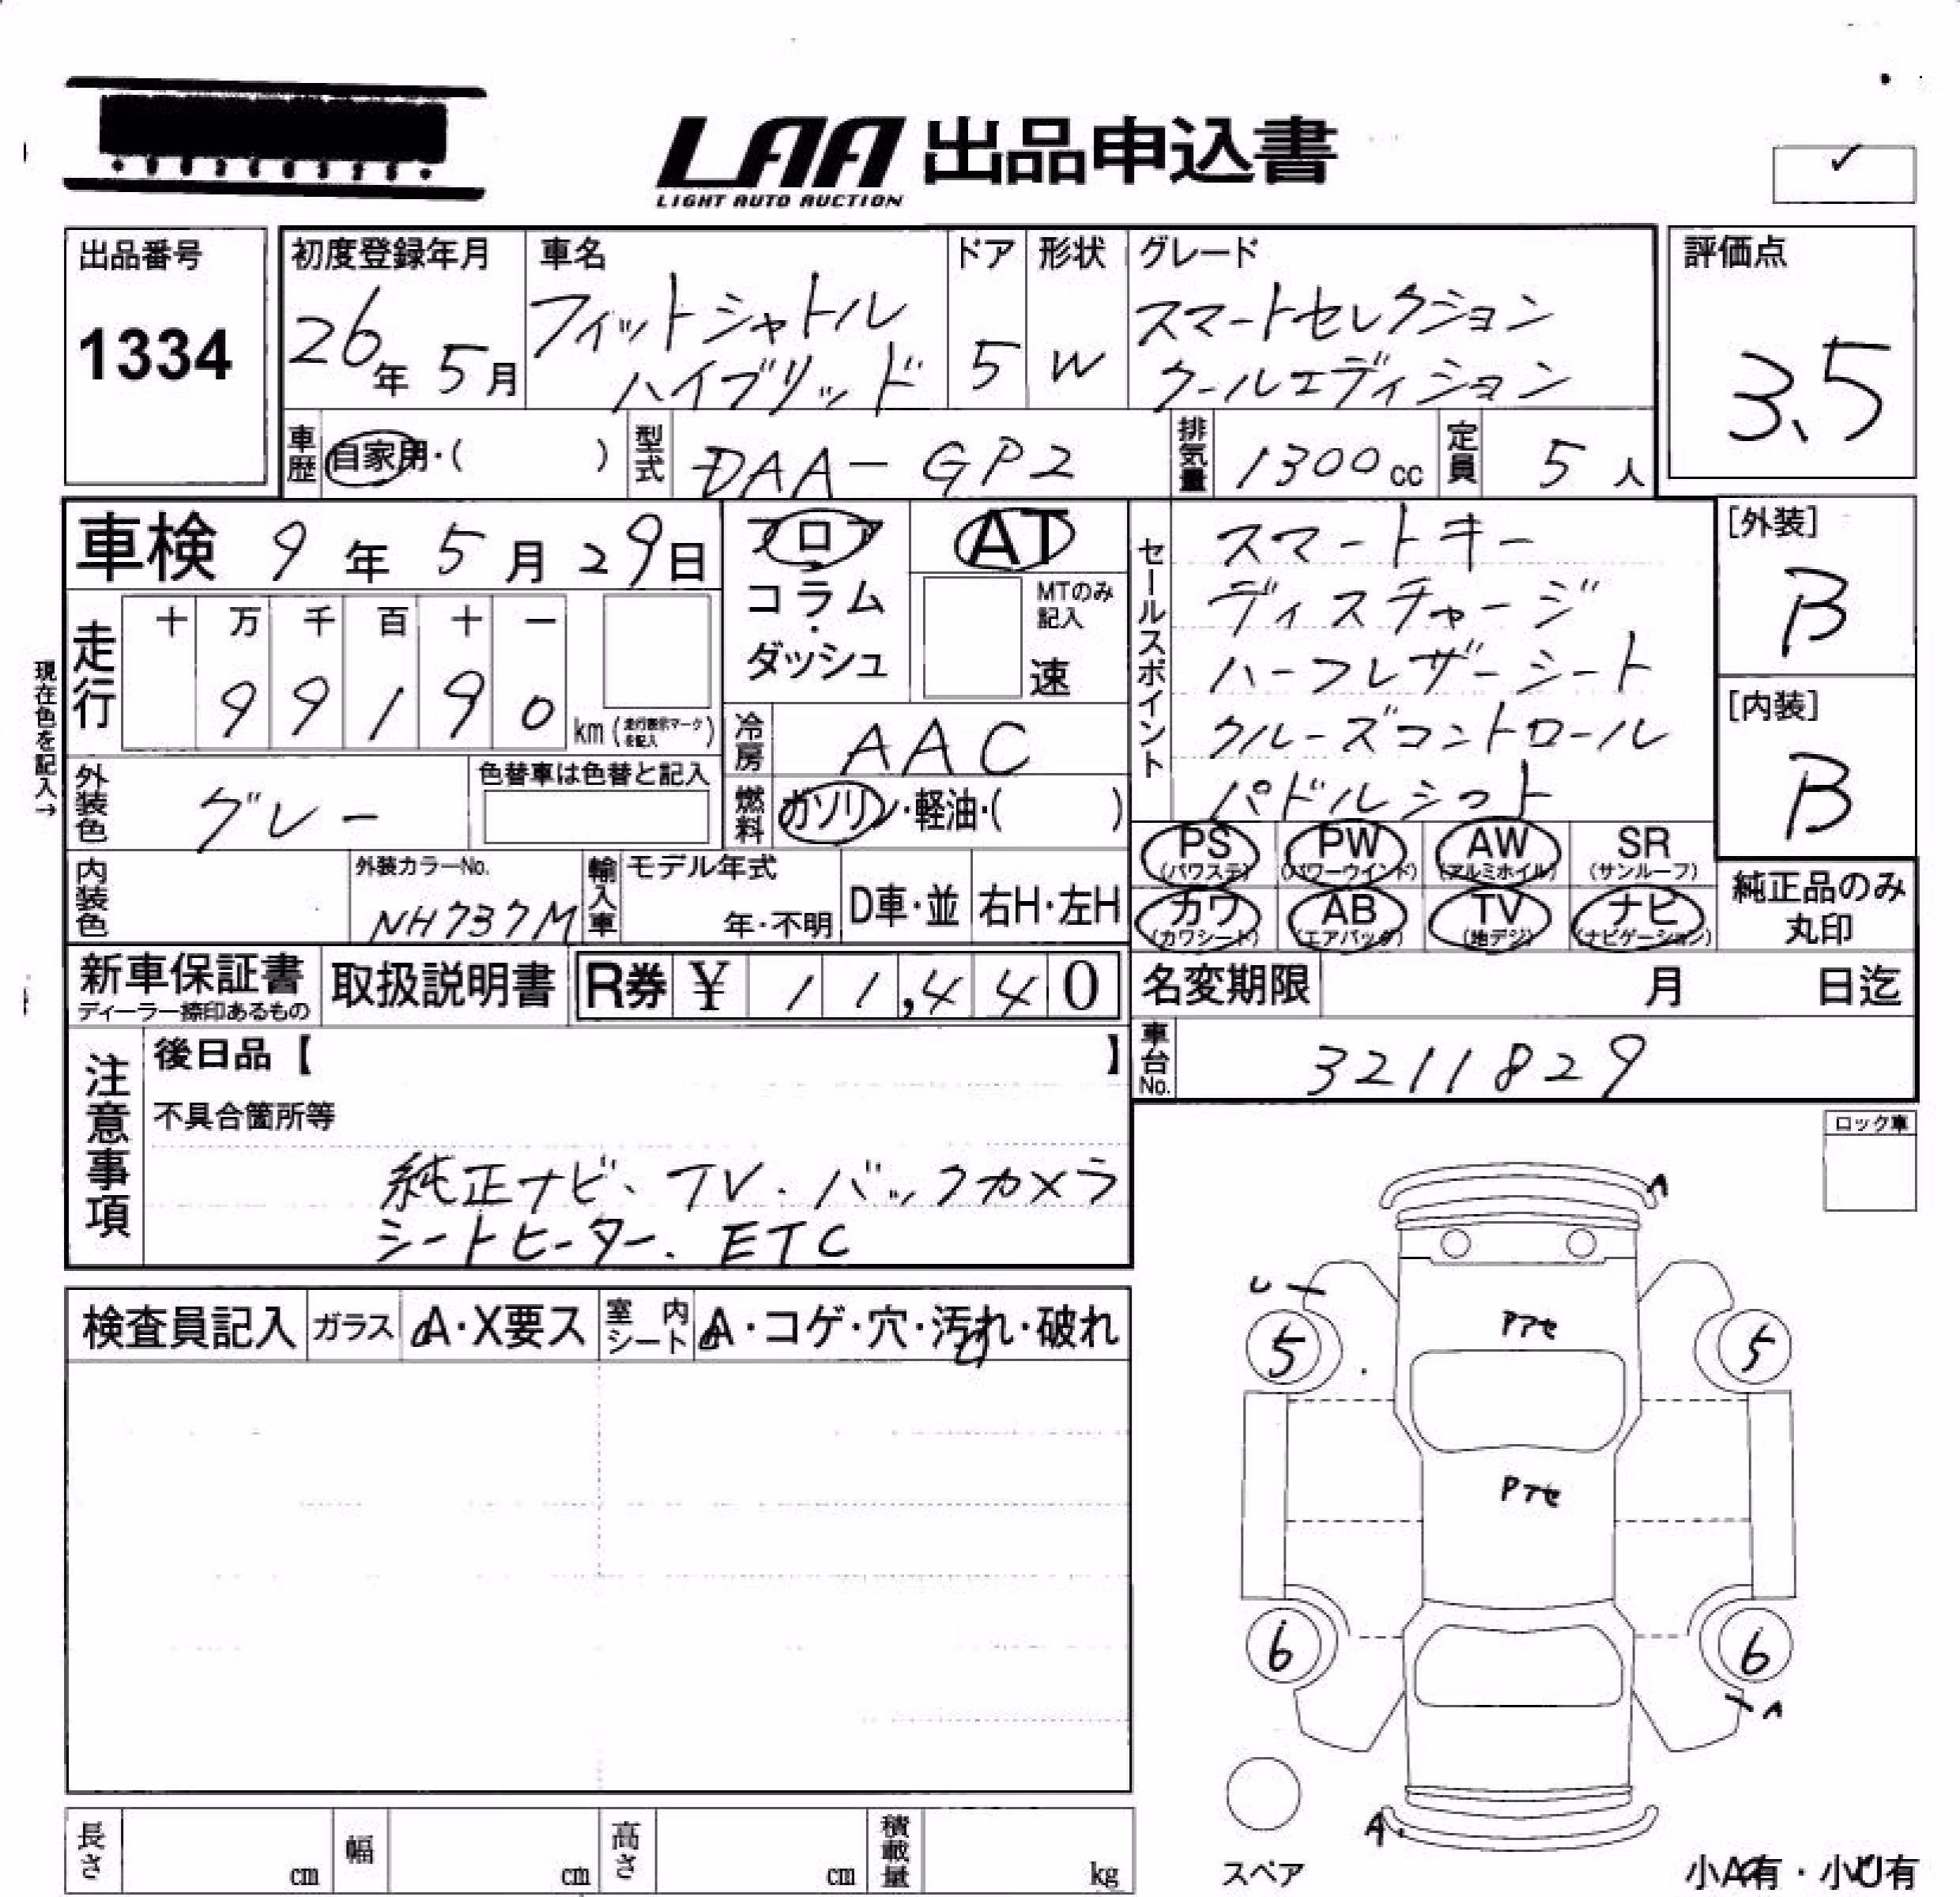 LAA 出品申込書
LIGHT AUTO AUCTION
✓
出品番号
1334
初度登録年月
26年 5月
車名
フィットシャトル
ハイブリッド
ドア
5
形状
W
グレード
スマートセレクション
クールエディション
評価点
3.5
車歴
自家用・( )
型式
DAA-GP2
排気量
1300cc
定員
5人
車検 9年 5月 29日
フロア
コラム
・
ダッシュ
AT
MTのみ
記入
速
セールスポイント
スマートキー
ディスチャージ
ハーフレザーシート
クルーズコントロール
パドルシフト
[外装]
B
[内装]
B
現在色を記入→
走行
十 万 千 百 十 一
9 9 1 9 0
km (走行表示マークを記入)
冷房
AAC
外装色
グレー
色替車は色替と記入
燃料
ガソリン・軽油・( )
PS (パワステ) PW (パワーウインド) AW (アルミホイル) SR (サンルーフ)
カワ (カワシート) AB (エアバッグ) TV (地デジ) ナビ (ナビゲーション)
純正品のみ
丸印
内装色
外装カラーNo.
NH737M
輸入車
モデル年式
年・不明
D車・並
右H・左H
新車保証書
ディーラー捺印あるもの
取扱説明書
R券 ¥ 11,440
名変期限 月 日迄
注意事項
後日品【 】
不具合箇所等
純正ナビ、TV、バックカメラ
シートヒーター、ETC
車台No.
3211829
ロック車
検査員記入
ガラス
A・X要ス
室内シート
A・コゲ・穴・汚れ・破れ
A
U
Pアセ
5
5
Pアセ
6
6
A
A
スペア
小A有・小U有
長さ cm
幅 cm
高さ cm
積載量 kg